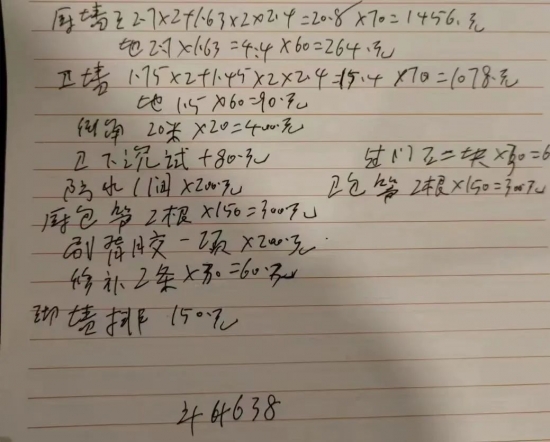 厨墙 2.7×2+1.63×2×2.4=20.8×70=1456.元
地 2.7×1.63=4.4×60=264.元
卫墙 1.75×2+1.45×2×2.4=15.4×70=1078.元
地 1.5×60=90.元
倒角 20米×20=400元
卫下沉 +80.元 过门石二块×30=6
防水 1间×200元 卫包管 2根×150=300元
厨包管 2根×150=300元
刷背胶一项×200元
修补 2条×30=60元
墙 150.元
4638